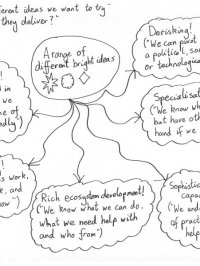 ferent ideas we want to try-
they deliver?"
A range of
different bright ideas
Derisking!
("We can pivot
a political, soc
or technologica
Specialisat
("We know wh
but have oth
hand if we
d in
we
ne of
ndly")
!
s work,
k, and
ow")
Rich ecosystem development!
("We know what we can do.
what we need help with
and who from")
Sophistic
capa
("We und
of pract
help